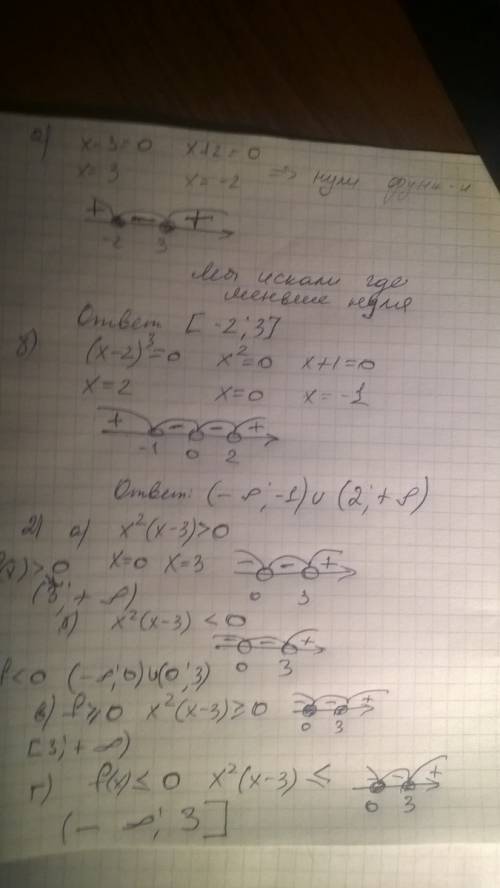 а) x-3=0 x+2=0
x=3 x=-2 => нули функ-и
+ - +
-2 3
Мы искали где
меньше нуля
Ответ [-2; 3]
б) (x-2)³=0 x²=0 x+1=0
x=2 x=0 x=-1
+ - - +
-1 0 2
Ответ: (-∞; -1) ∪ (2; +∞)
2) а) x²(x-3)>0
f(x)>0 x=0 x=3 - - +
0 3
(3; +∞)
б) x²(x-3) <0 - - +
0 3
f<0 (-∞; 0)∪(0; 3)
в) f≥0 x²(x-3)≥0 - - +
0 3
[3; +∞)
г) f(x) ≤ 0 x²(x-3) ≤ - - +
0 3
(-∞; 3]